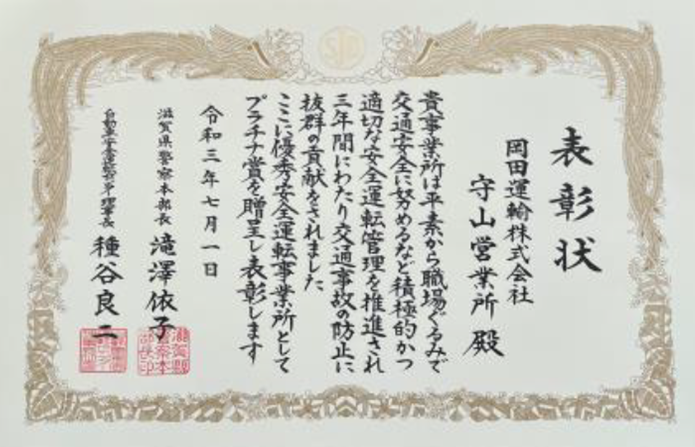 表彰状
岡田運輸株式会社
守山営業所 殿
貴事業所は平素から職場ぐるみで
交通安全に努めるなど積極的かつ
適切な安全運転管理を推進され
三年間にわたり交通事故の防止に
抜群の貢献をされました
ここに優秀安全運転事業所として
プラチナ賞を贈呈し表彰します
令和三年七月一日
滋賀県警察本部長 滝澤依子
理事長 種谷良二